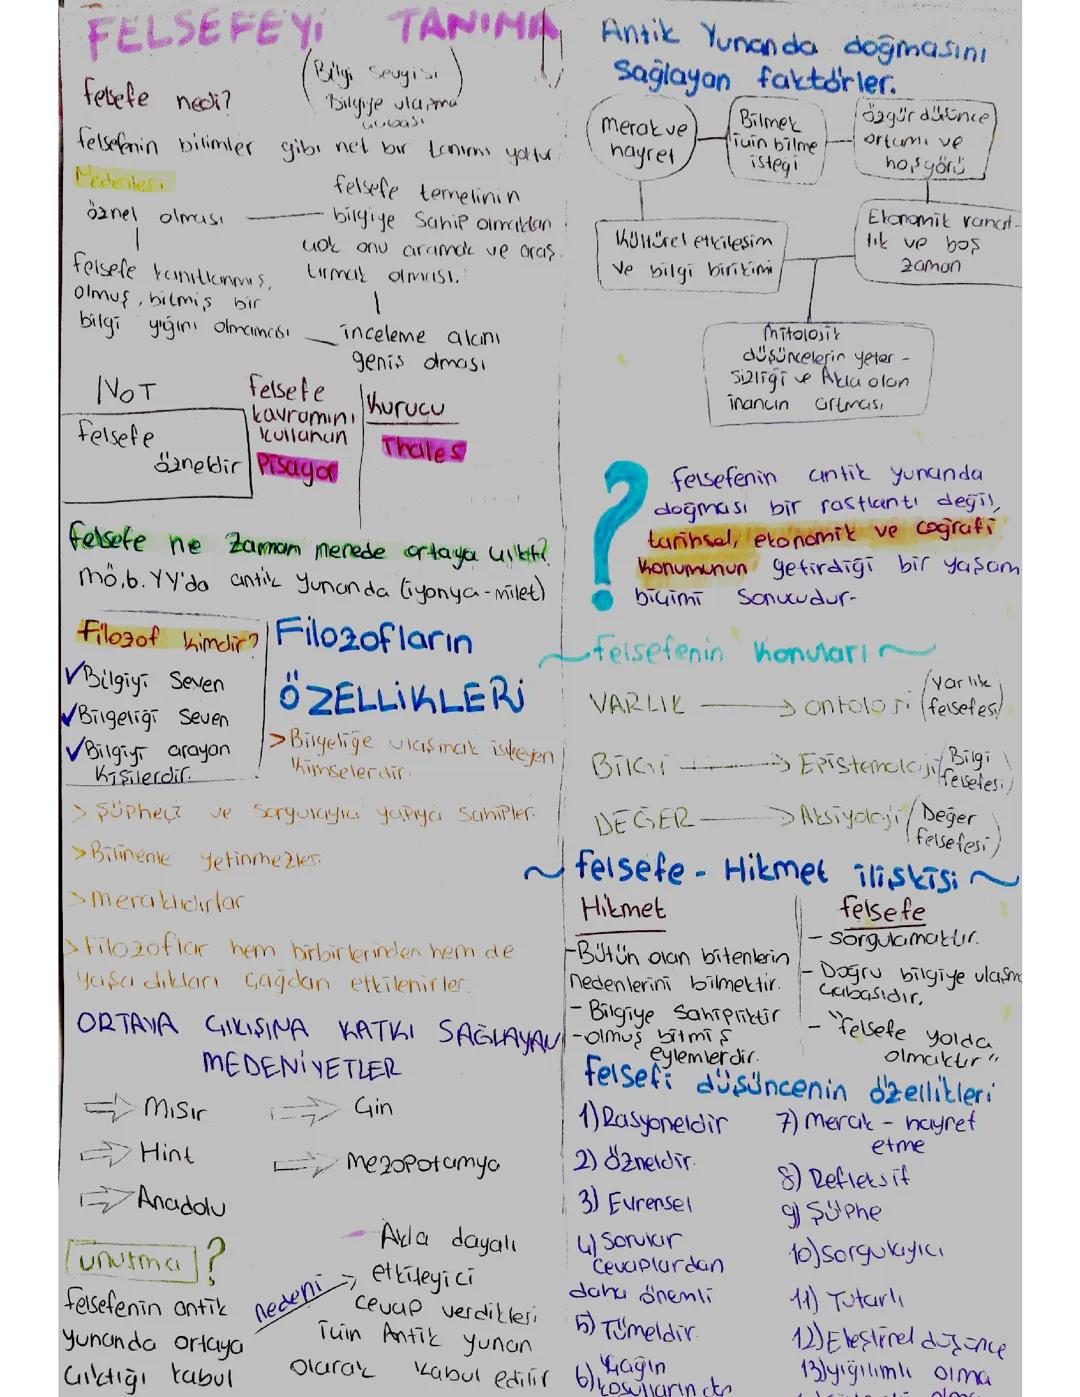 FELSEFEYİ TANIMA
(Bilgi sevgisi
Bilgiye ulaşma
çabası)
felsefe nedi?
felsefenin bilimler gibi net bir tanımı yoktur
Nedenleri
öznel olması
felsefe temelinin
bilgiye sahip olmaktan
çok onu aramak ve araş-
tırmak olması.
felsefe kanıtlanmış,
olmuş, bitmiş bir
bilgi yığını olmaması
inceleme alanı
geniş olması
NOT
felsefe
özneldir
felsefe
kavramını
kullanan
Pisagor
Kurucu
Thales
felsefe ne zaman nerede ortaya çıktı?
mö,6.YY'da antik yunanda (iyonya-milet)
Filozof kimdir?
✓Bilgiyi Seven
✓Bilgeliği Seven
✓Bilgiyi arayan
Kişilerdir.
Filozofların
ÖZELLİKLERİ
>Bilgeliğe ulaşmak isteyen
kimselerdir.
> şüpheçi ve sorgulayıcı yapıya sahipler.
>Bilinenle yetinmezler.
>meraklıdırlar
>filozoflar hem birbirlerinden hem de
yaşadıkları çağdan etkilenirler.
ORTAYA ÇIKIŞINA KATKI SAĞLAYAN
MEDENİYETLER
⇒ Mısır
⇒ Çin
⇒ Hint
⇒ Mezopotamya
⇒ Anadolu
unutma ?
felsefenin antik
yunanda ortaya
çıktığı kabul
nedeni
- Akla dayalı
etkileyici
cevap verdikleri
için Antik yunan
olarak kabul edilir
Antik Yunanda doğmasını
sağlayan faktörler.
merak ve
hayret
Bilmek
için bilme
isteği
özgür düşünce
ortamı ve
hoşgörü
Kültürel etkileşim
ve bilgi birikimi
Ekonomik rahat-
lık ve boş
zaman
mitolojik
düşüncelerin yeter-
sizliği ve Akla olan
inancın artması
?
felsefenin antik yunanda
doğması bir rastlantı değil,
tarihsel, ekonomik ve coğrafi
konumunun getirdiği bir yaşam
biçimi Sonucudur-
~felsefenin konuları~
VARLIK → ontoloji (varlık
felsefesi)
BİLGİ → Epistemoloji (Bilgi
felsefesi)
DEĞER → Aksiyoloji (Değer
felsefesi)
~ felsefe - Hikmet ilişkisi ~
Hikmet
-Bütün olan bitenlerin
nedenlerini bilmektir.
- Bilgiye sahipliktir
-olmuş bitmiş
eylemlerdir.
felsefe
- sorgulamaktır.
- Doğru bilgiye ulaşma
çabasıdır.
- "felsefe yolda
olmaktır"
felsefi düşüncenin özellikleri
1) Rasyoneldir
2) özneldir.
3) Evrensel
4) Sorular
cevaplardan
daha önemli
5) Tümeldir.
6) Çağın
koşullarından
7) merak - hayret
etme
8) Refleksif
9) Şüphe
10) sorgulayıcı
11) Tutarlı
12) Eleştirel düşünce
13) yığılımlı olma